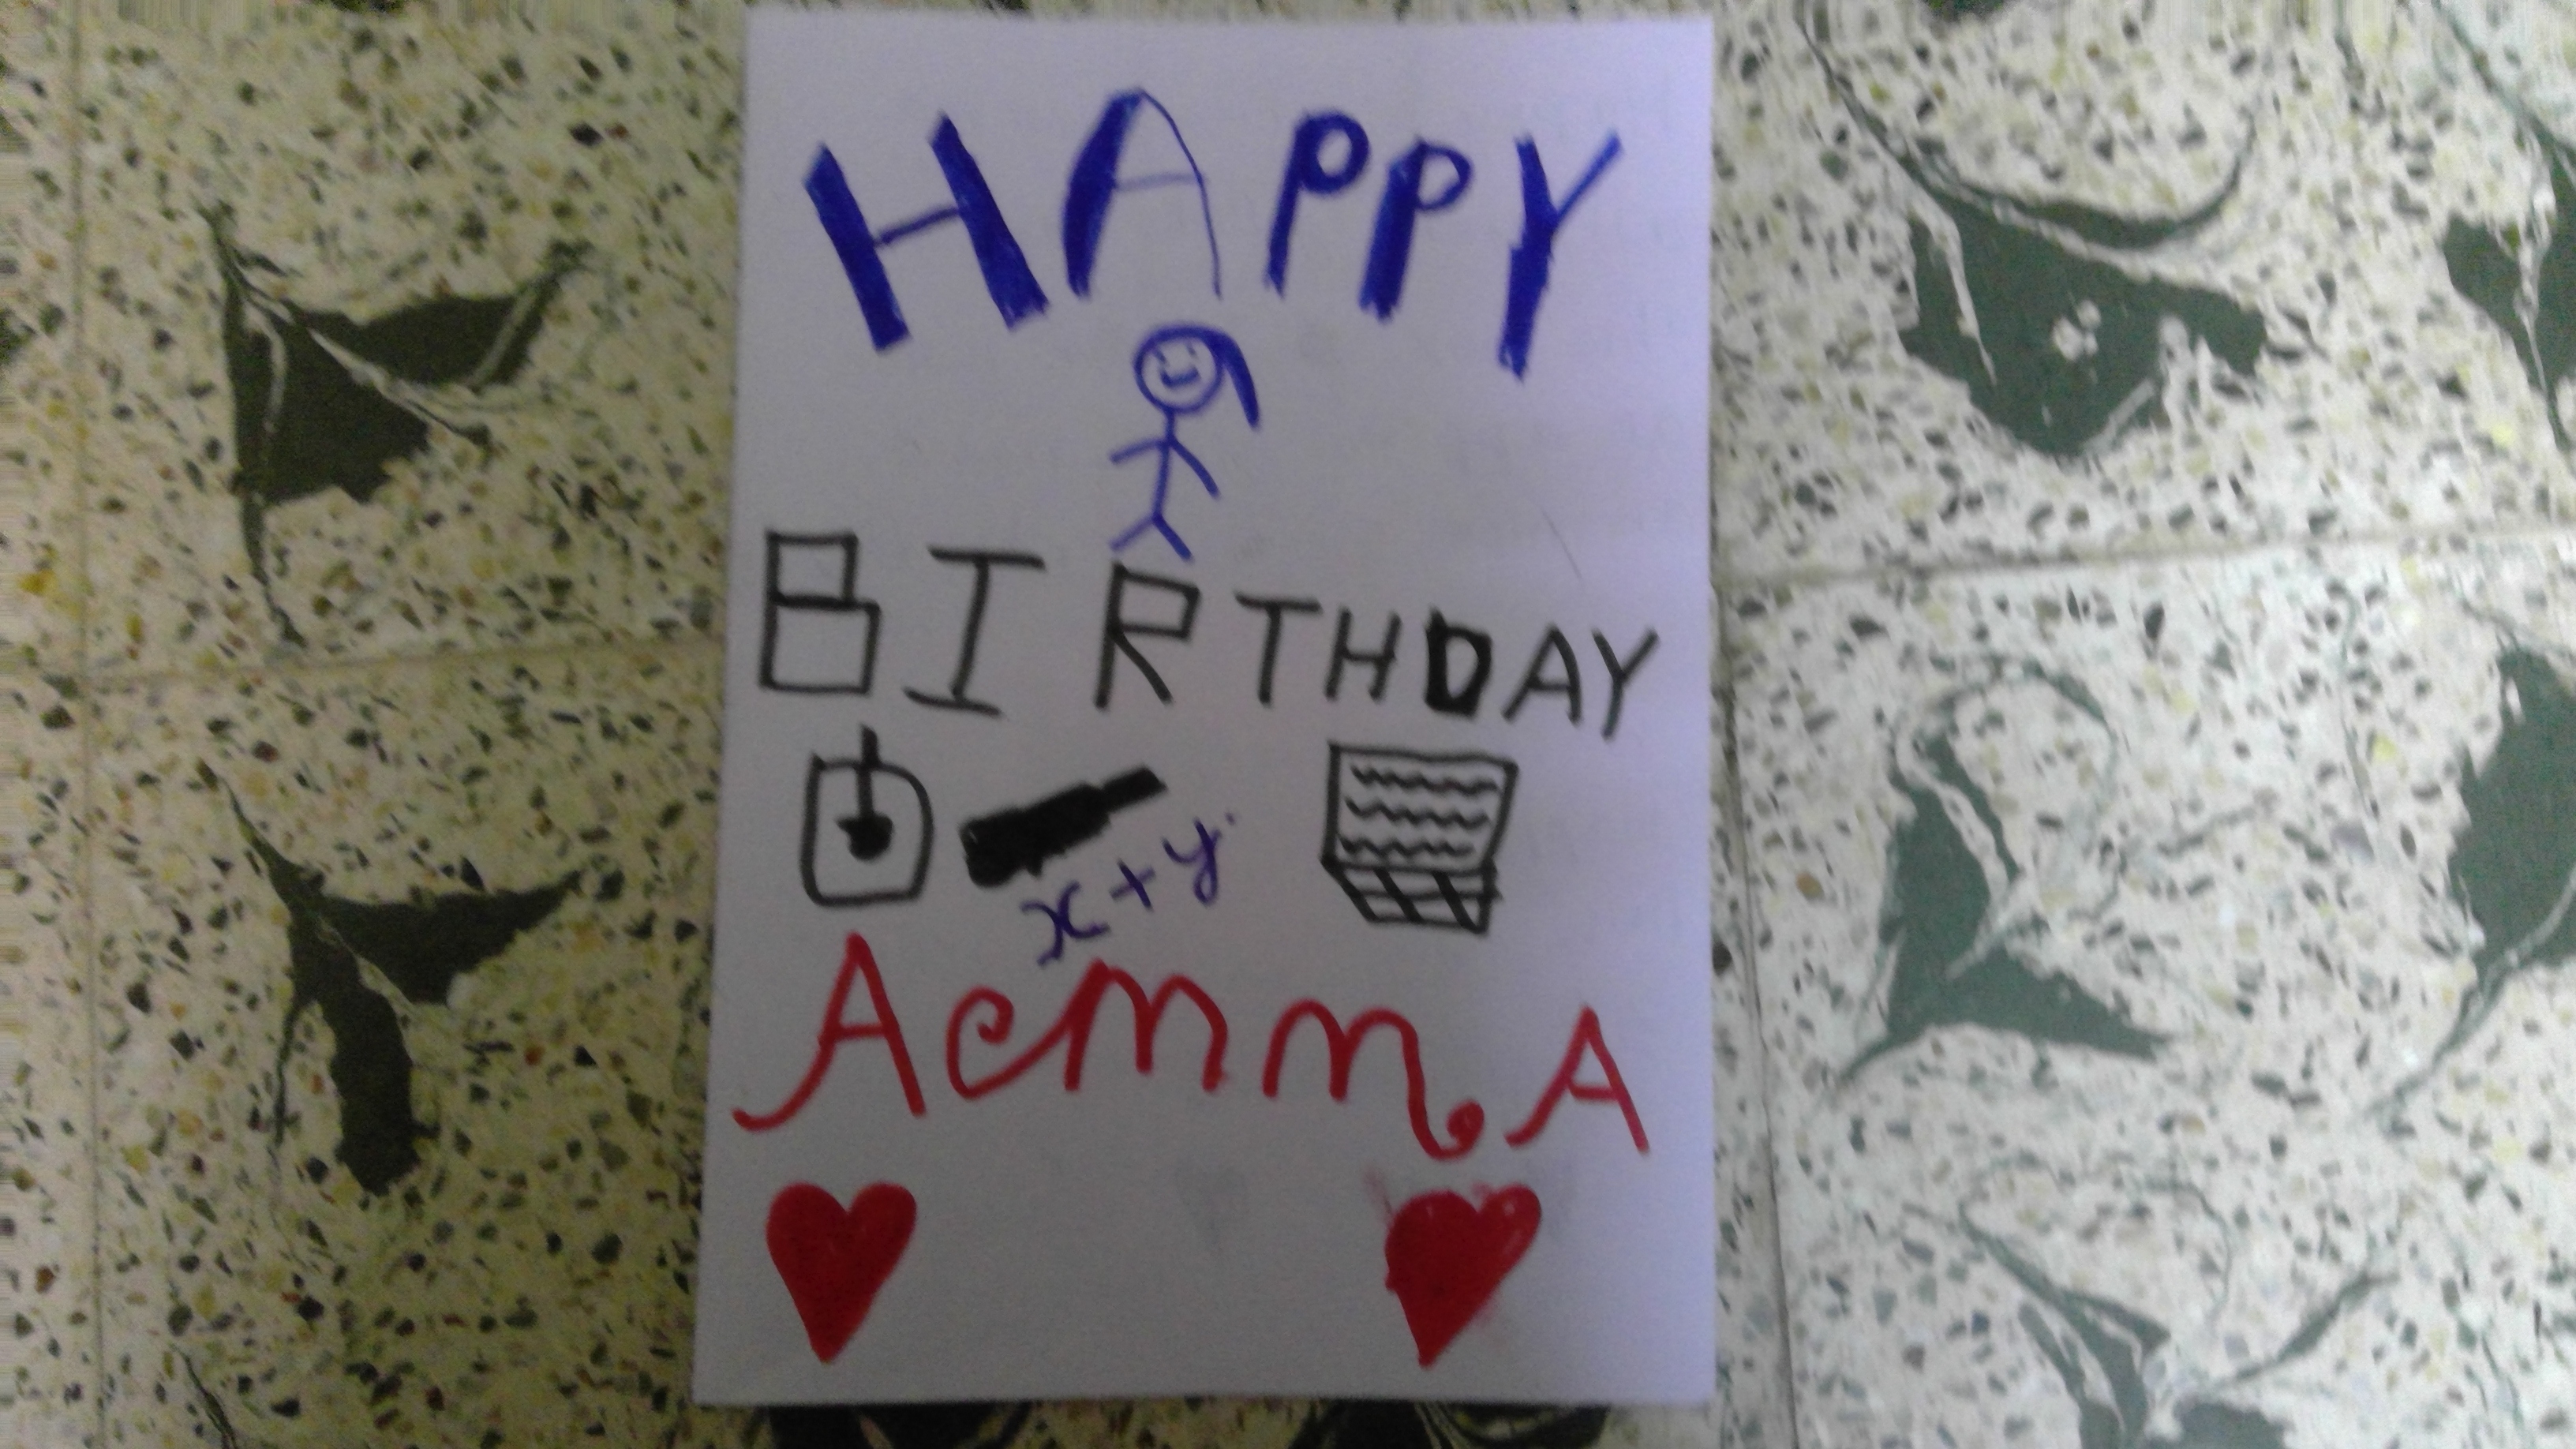 HAPPY
BIRTHDAY
x+y
AemmA